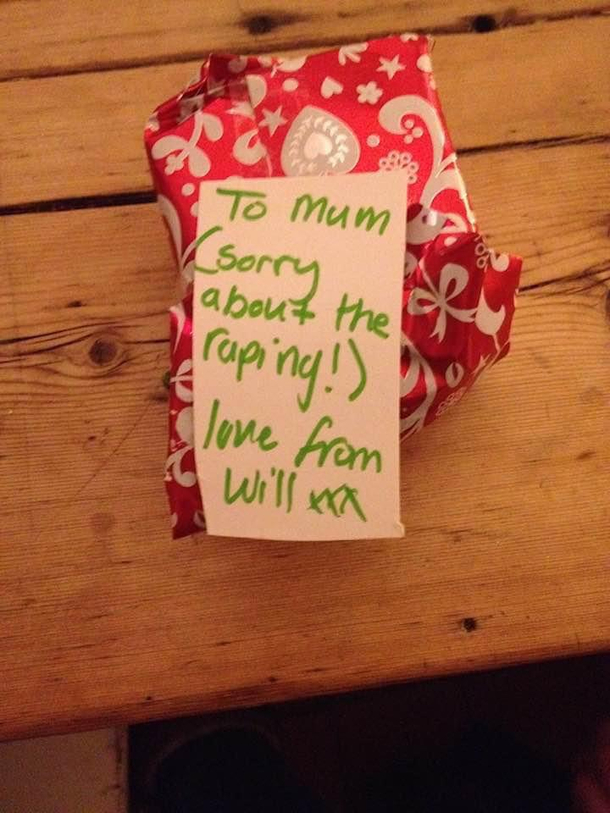 To Mum
(sorry
about the
raping!)
love from
Will xxx